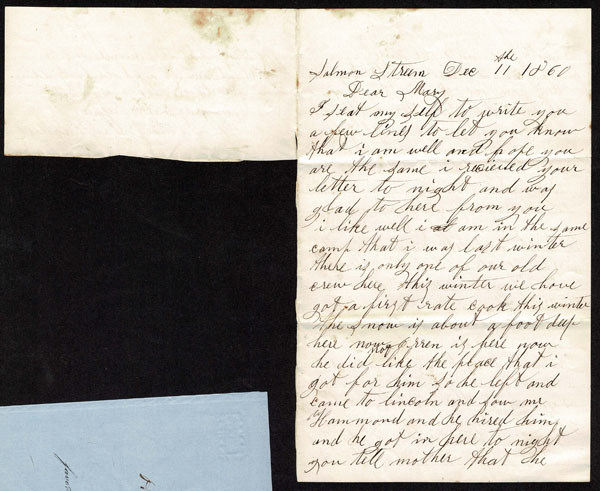 Salmon Streem Dec 11 the 1860
Dear Mary
I seat my self to write you
a few lines to let you know
that i am well and hope you
are the same i recieled your
letter to night and was
glad to here from you
i like well i am in the same
camp that i was last winter
there is only one of our old
crew here this winter we have
got a first rate cook this winter
the snow is about a foot deep
here now Orren is here now
he did not like the place that i
got for him so he left and
came to lincoln and sow mr
Hammond and he hired him
and he got in here to night
you tell mother that she